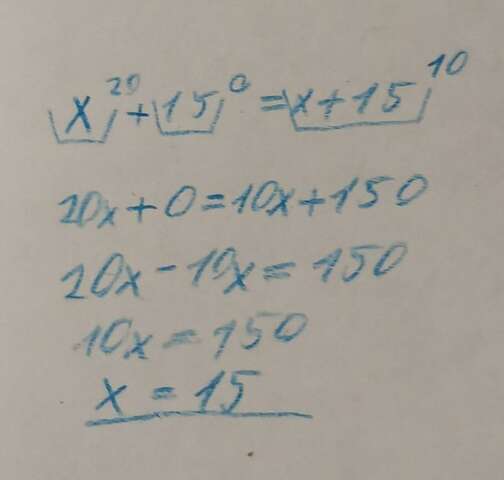 x²⁰ + 15⁰ = x + 15¹⁰
20x + 0 = 10x + 150
20x - 10x = 150
10x = 150
x = 15